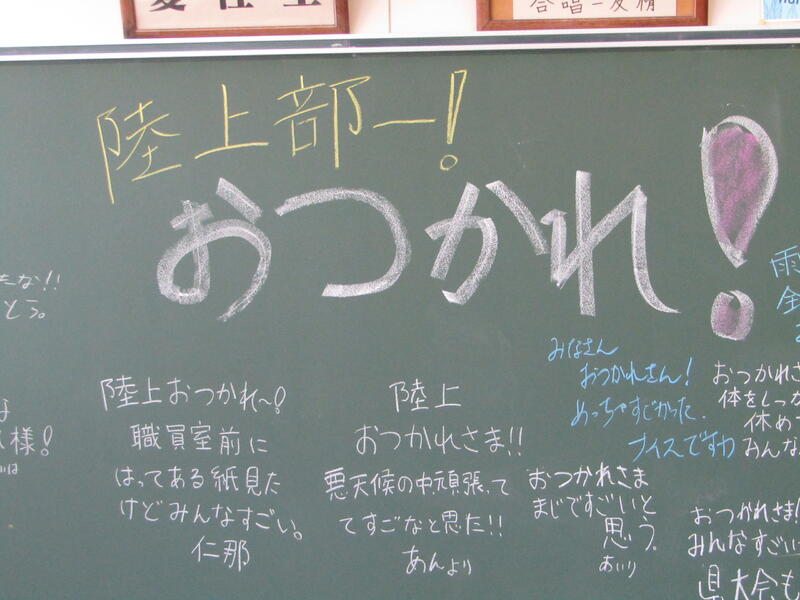 合唱
陸上部ー!
おつかれ!
たな!!
とう。
様!
陸上おつかれ〜!
職員室前に
はってある紙見た
けどみんなすごい。
仁那
陸上
おつかれさま!!
悪天候の中頑張って
てすごなと思った!!
あんより
みなさん
おつかれさん!
めっちゃすごかった.
ナイスですわ
おつかれさま
まじですごいと
思う。
あいり
雨
全
おつかれさ
体をしっ
休め
みんな
おつかれさま!
みんなすごい
県大会も